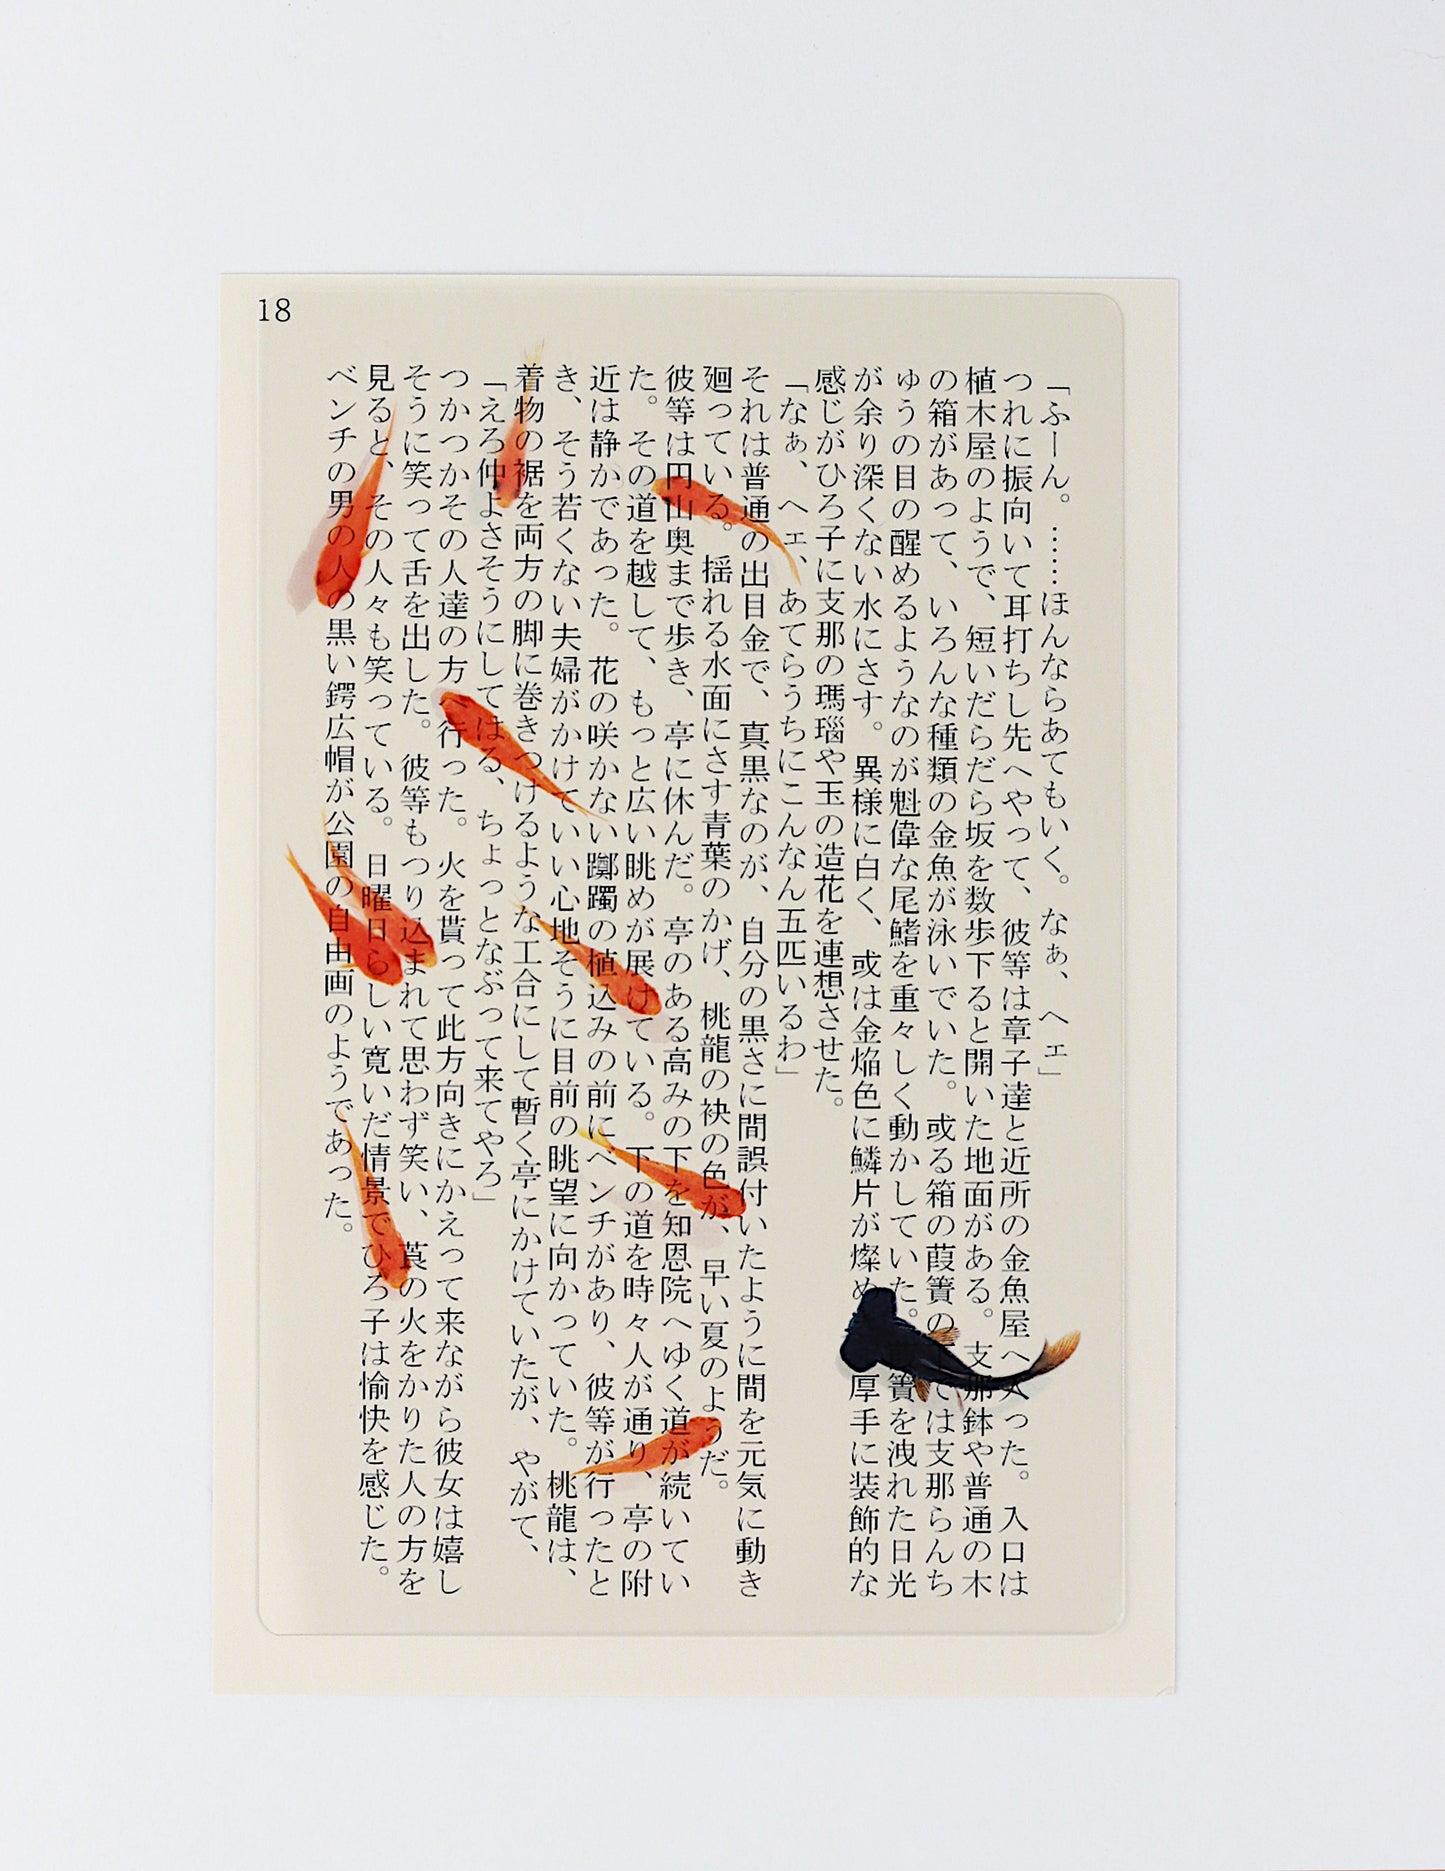 18
「ふーん。……ほんならあてもいく。なぁ、ヘェ」
つれに振向いて耳打ちし先へやって、彼等は章子達と近所の金魚屋へ入った。入口は
植木屋のようで、短いだらだら坂を数歩下ると開いた地面がある。支那鉢や普通の木
の箱があって、いろんな種類の金魚が泳いでいた。或る箱の葭簀のでは支那らんち
ゅうの目の醒めるようなのが魁偉な尾鰭を重々しく動かしていた。簀を洩れた日光
が余り深くない水にさす。異様に白く、或は金焔色に鱗片が燦め厚手に装飾的な
感じがひろ子に支那の瑪瑙や玉の造花を連想させた。
「なぁ、ヘェ、あてらうちにこんなん五匹いるわ」
それは普通の出目金で、真黒なのが、自分の黒さに間誤付いたように間を元気に動き
廻っている。揺れる水面にさす青葉のかげ、桃龍の袂の色が、早い夏のようだ。
彼等は円山奥まで歩き、亭に休んだ。亭のある高みの下を知恩院へゆく道が続いてい
た。その道を越して、もっと広い眺めが展けている。下の道を時々人が通り、亭の附
近は静かであった。花の咲かない躑躅の植込みの前にベンチがあり、彼等が行ったと
き、そう若くない夫婦がかけていい心地そうに目前の眺望に向かっていた。桃龍は、
着物の裾を両方の脚に巻きつけるような工合にして暫く亭にかけていたが、やがて、
「えろ仲よさそうにしてはる、ちょっとなぶって来てやろ」
つかつかその人達の方へ行った。火を貰って此方向きにかえって来ながら彼女は嬉し
そうに笑って舌を出した。彼等もつり込まれて思わず笑い、莨の火をかりた人の方を
見ると、その人々も笑っている。日曜日らしい寛いだ情景でひろ子は愉快を感じた。
ベンチの男の人の黒い鍔広帽が公園の自由画のようであった。